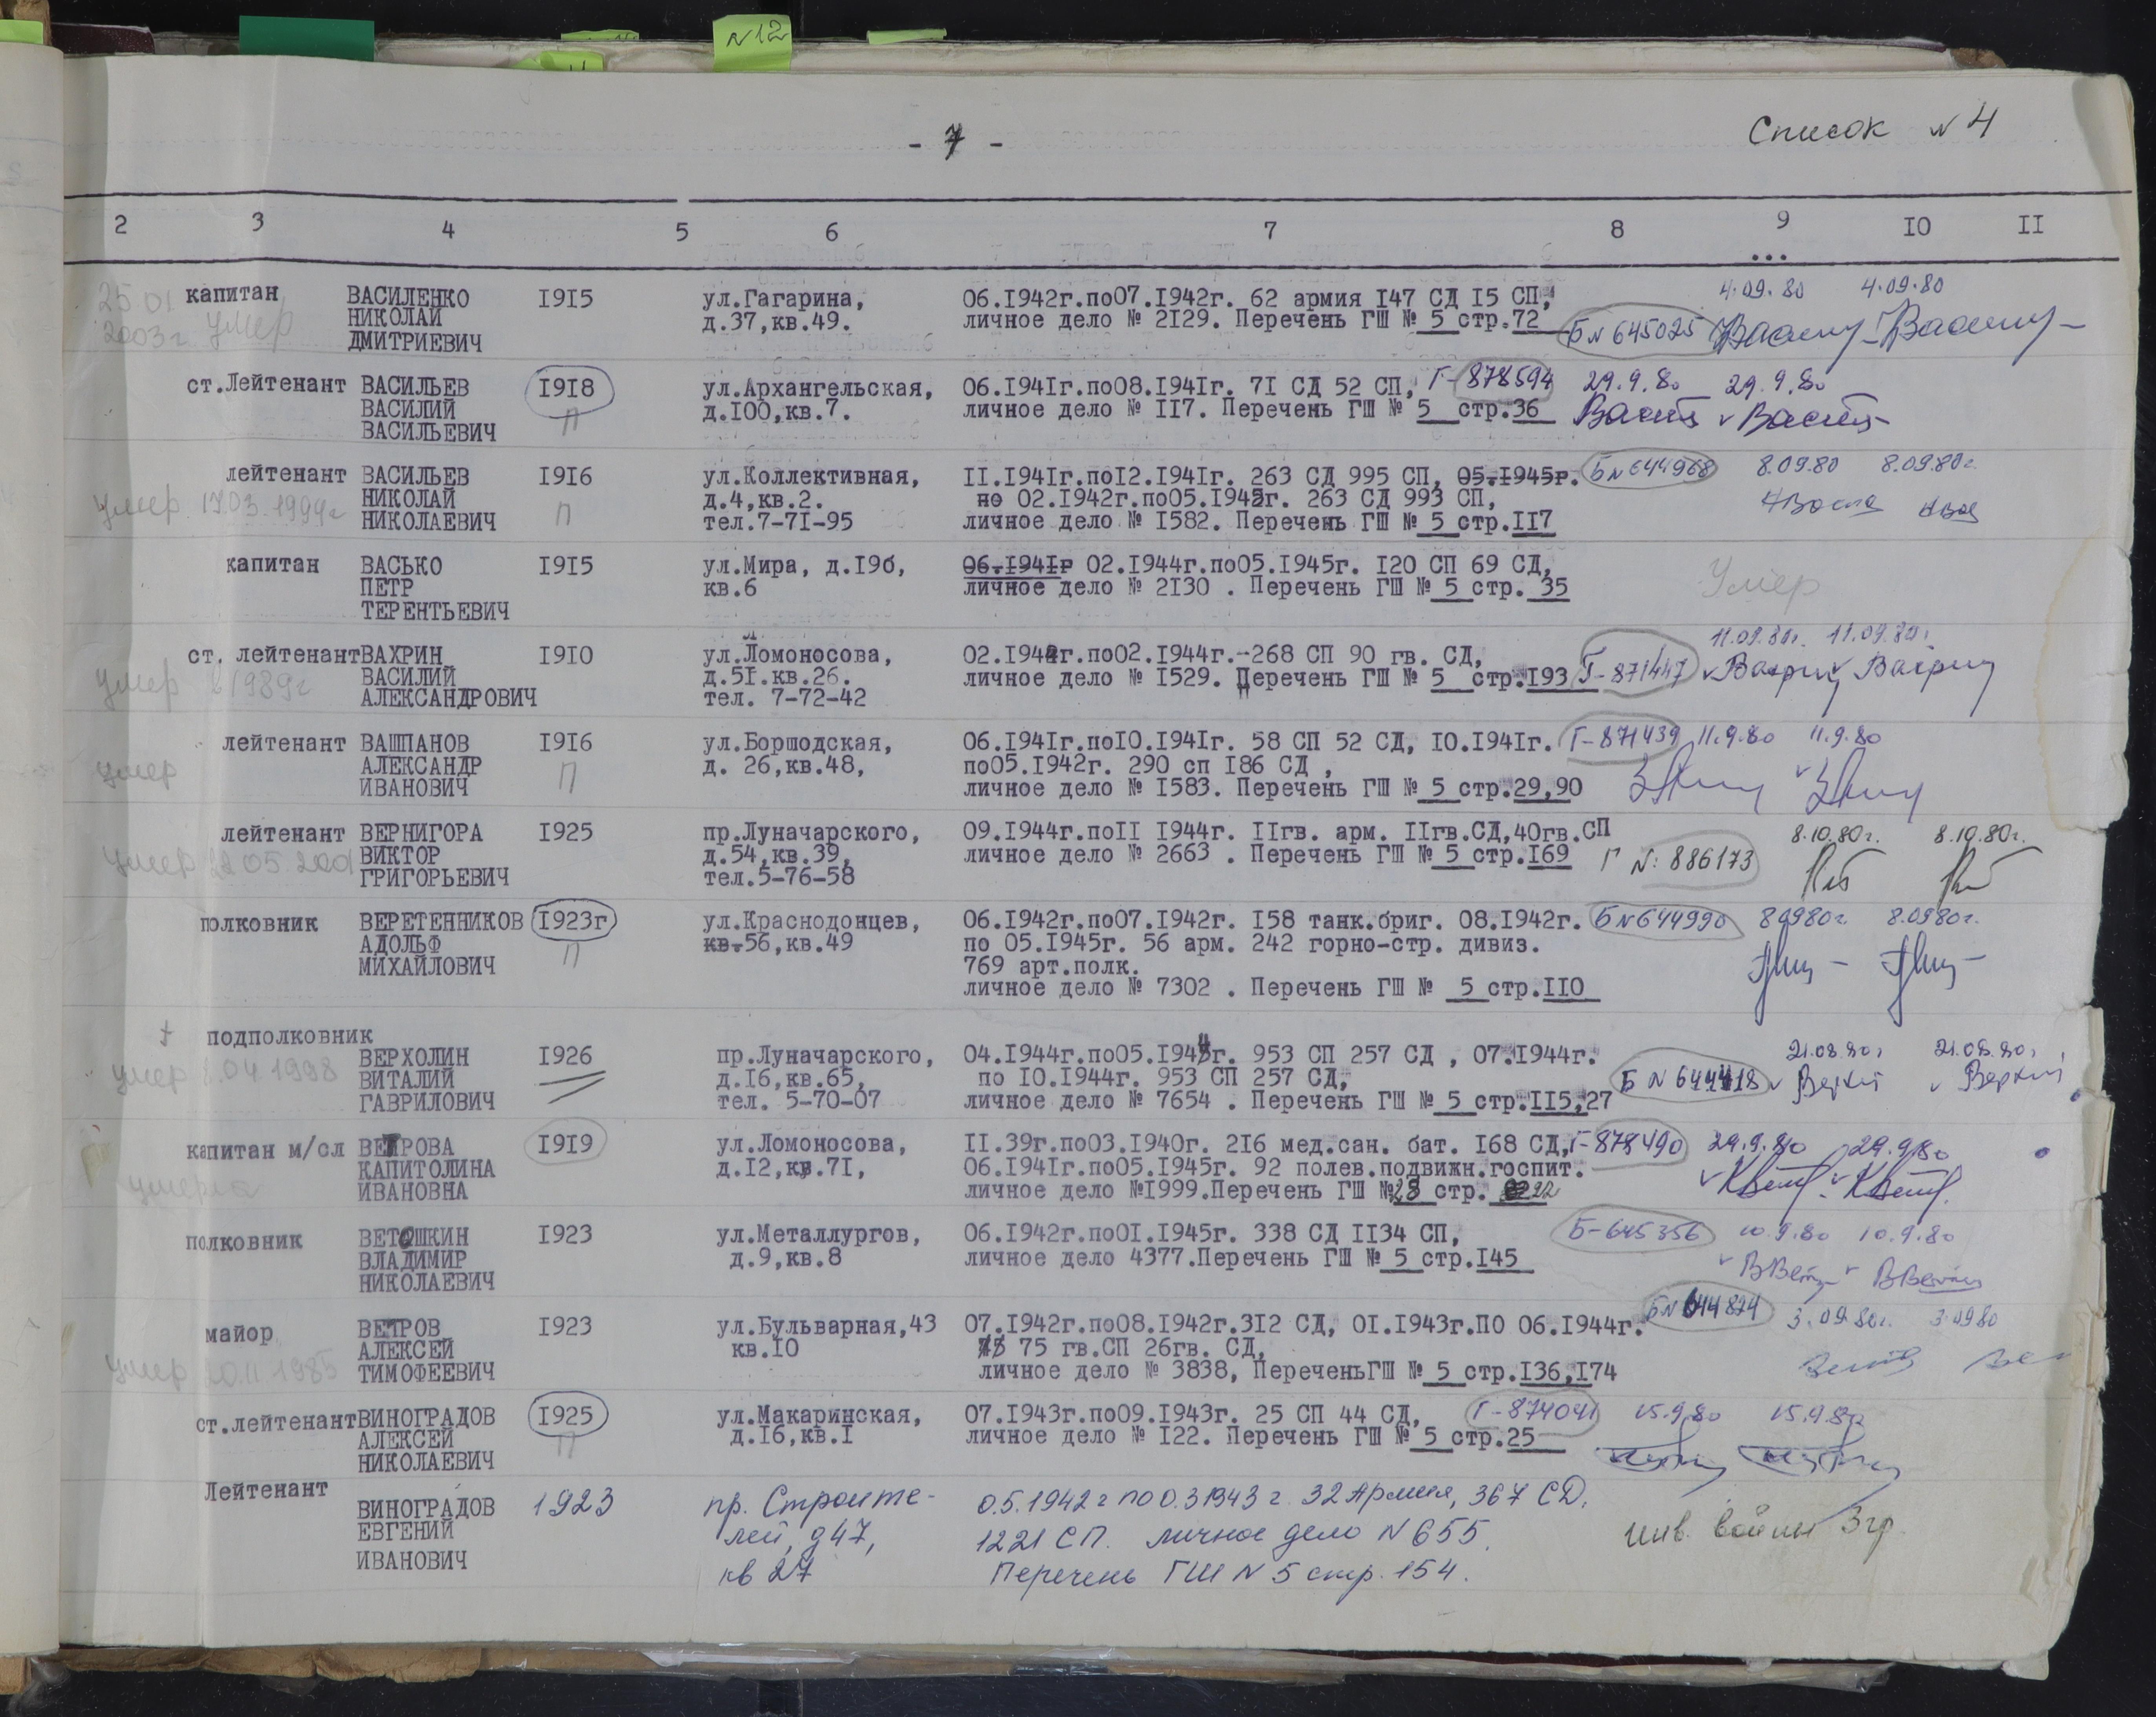 N12
- 7 -
Список N 4
2 3 4 5 6 7 8 9 IO II
...
25 01
2003г умер
капитан
ВАСИЛЕНКО
НИКОЛАЙ
ДМИТРИЕВИЧ
I9I5
ул.Гагарина,
д.37,кв.49.
06.I942г.по07.I942г. 62 армия I47 СД I5 СП,
личное дело № 2I29. Перечень ГШ № 5 стр.72
Б N 645025
4.09.80 4.09.80
ст.Лейтенант
ВАСИЛЬЕВ
ВАСИЛИЙ
ВАСИЛЬЕВИЧ
I9I8
П
ул.Архангельская,
д.I00,кв.7.
06.I94Iг.по08.I94Iг. 7I СД 52 СП,
личное дело № II7. Перечень ГШ № 5 стр.36
Г-878594
29.9.80 29.9.80
умер 17.03.1999г
лейтенант
ВАСИЛЬЕВ
НИКОЛАЙ
НИКОЛАЕВИЧ
I9I6
П
ул.Коллективная,
д.4,кв.2.
тел.7-7I-95
II.I94Iг.поI2.I94Iг. 263 СД 995 СП, 05.I945г.
по 02.I942г.по05.I945г. 263 СД 993 СП,
личное дело № I582. Перечень ГШ № 5 стр.II7
Б N 644968
8.09.80 8.09.80г.
капитан
ВАСЬКО
ПЕТР
ТЕРЕНТЬЕВИЧ
I9I5
ул.Мира, д.I9б,
кв.6
06.I94Iг 02.I944г.по05.I945г. I20 СП 69 СД,
личное дело № 2I30 . Перечень ГШ № 5 стр. 35
Умер
умер в 1989г
ст. лейтенант
ВАХРИН
ВАСИЛИЙ
АЛЕКСАНДРОВИЧ
I9I0
ул.Ломоносова,
д.5I.кв.26.
тел. 7-72-42
02.I944г.по02.I944г.-268 СП 90 гв. СД,
личное дело № I529. Перечень ГШ № 5 стр.I93
Г-871447
11.09.80г. 11.09.80г.
умер
лейтенант
ВАШПАНОВ
АЛЕКСАНДР
ИВАНОВИЧ
I9I6
П
ул.Боршодская,
д. 26,кв.48,
06.I94Iг.поI0.I94Iг. 58 СП 52 СД, I0.I94Iг.
по05.I942г. 290 сп I86 СД ,
личное дело № I583. Перечень ГШ № 5 стр.29,90
Г-871439
11.9.80 11.9.80
умер 05 2001
лейтенант
ВЕРНИГОРА
ВИКТОР
ГРИГОРЬЕВИЧ
I925
пр.Луначарского,
д.54,кв.39,
тел.5-76-58
09.I944г.поII I944г. IIгв. арм. IIгв.СД,40гв.СП
личное дело № 2663 . Перечень ГШ № 5 стр.I69
Г N: 886173
8.10.80г. 8.10.80г.
полковник
ВЕРЕТЕННИКОВ
АДОЛЬФ
МИХАЙЛОВИЧ
I923г
П
ул.Краснодонцев,
кв.56,кв.49
06.I942г.по07.I942г. I58 танк.бриг. 08.I942г.
по 05.I945г. 56 арм. 242 горно-стр. дивиз.
769 арт.полк.
личное дело № 7302 . Перечень ГШ № 5 стр.II0
Б N 644990
8.0980г 8.0980г.
умер 04 1998
подполковник
ВЕРХОЛИН
ВИТАЛИЙ
ГАВРИЛОВИЧ
I926
пр.Луначарского,
д.I6,кв.65,
тел. 5-70-07
04.I944г.по05.I944г. 953 СП 257 СД , 07.I944г.
по I0.I944г. 953 СП 257 СД,
личное дело № 7654 . Перечень ГШ № 5 стр.II5,27
Б N 644418
21.08.80г 21.08.80г
умерла
капитан м/сл
ВЕТРОВА
КАПИТОЛИНА
ИВАНОВНА
I9I9
ул.Ломоносова,
д.I2,кв.7I,
II.39г.по03.I940г. 2I6 мед.сан. бат. I68 СД,
06.I94Iг.по05.I945г. 92 полев.подвижн.госпит.
личное дело №I999.Перечень ГШ №28 стр. 22
Г-878490
29.9.80 29.9.80
полковник
ВЕТОШКИН
ВЛАДИМИР
НИКОЛАЕВИЧ
I923
ул.Металлургов,
д.9,кв.8
06.I942г.по0I.I945г. 338 СД II34 СП,
личное дело 4377.Перечень ГШ № 5 стр.I45
Б-645356
10.9.80 10.9.80
умер 20.11 1985
майор
ВЕТРОВ
АЛЕКСЕЙ
ТИМОФЕЕВИЧ
I923
ул.Бульварная,43
кв.I0
07.I942г.по08.I942г.3I2 СД, 0I.I943г.ПО 06.I944г.
75 гв.СП 26гв. СД,
личное дело № 3838, ПереченьГШ № 5 стр.I36,I74
Б N 644874
3.09.80г. 3.0980
ст.лейтенант
ВИНОГРАДОВ
АЛЕКСЕЙ
НИКОЛАЕВИЧ
I925
П
ул.Макаринская,
д.I6,кв.I
07.I943г.по09.I943г. 25 СП 44 СД,
личное дело № I22. Перечень ГШ № 5 стр.25
Г-874041
15.9.80 15.9.80
Лейтенант
ВИНОГРАДОВ
ЕВГЕНИЙ
ИВАНОВИЧ
1923
пр. Строите-
лей, д47,
кв 27
05.1942г по 03 1943г. 32 Армия, 367 СД,
1221 СП. личное дело N 655.
Перечень ГШ N 5 стр. 154.
инв. войны 3гр.